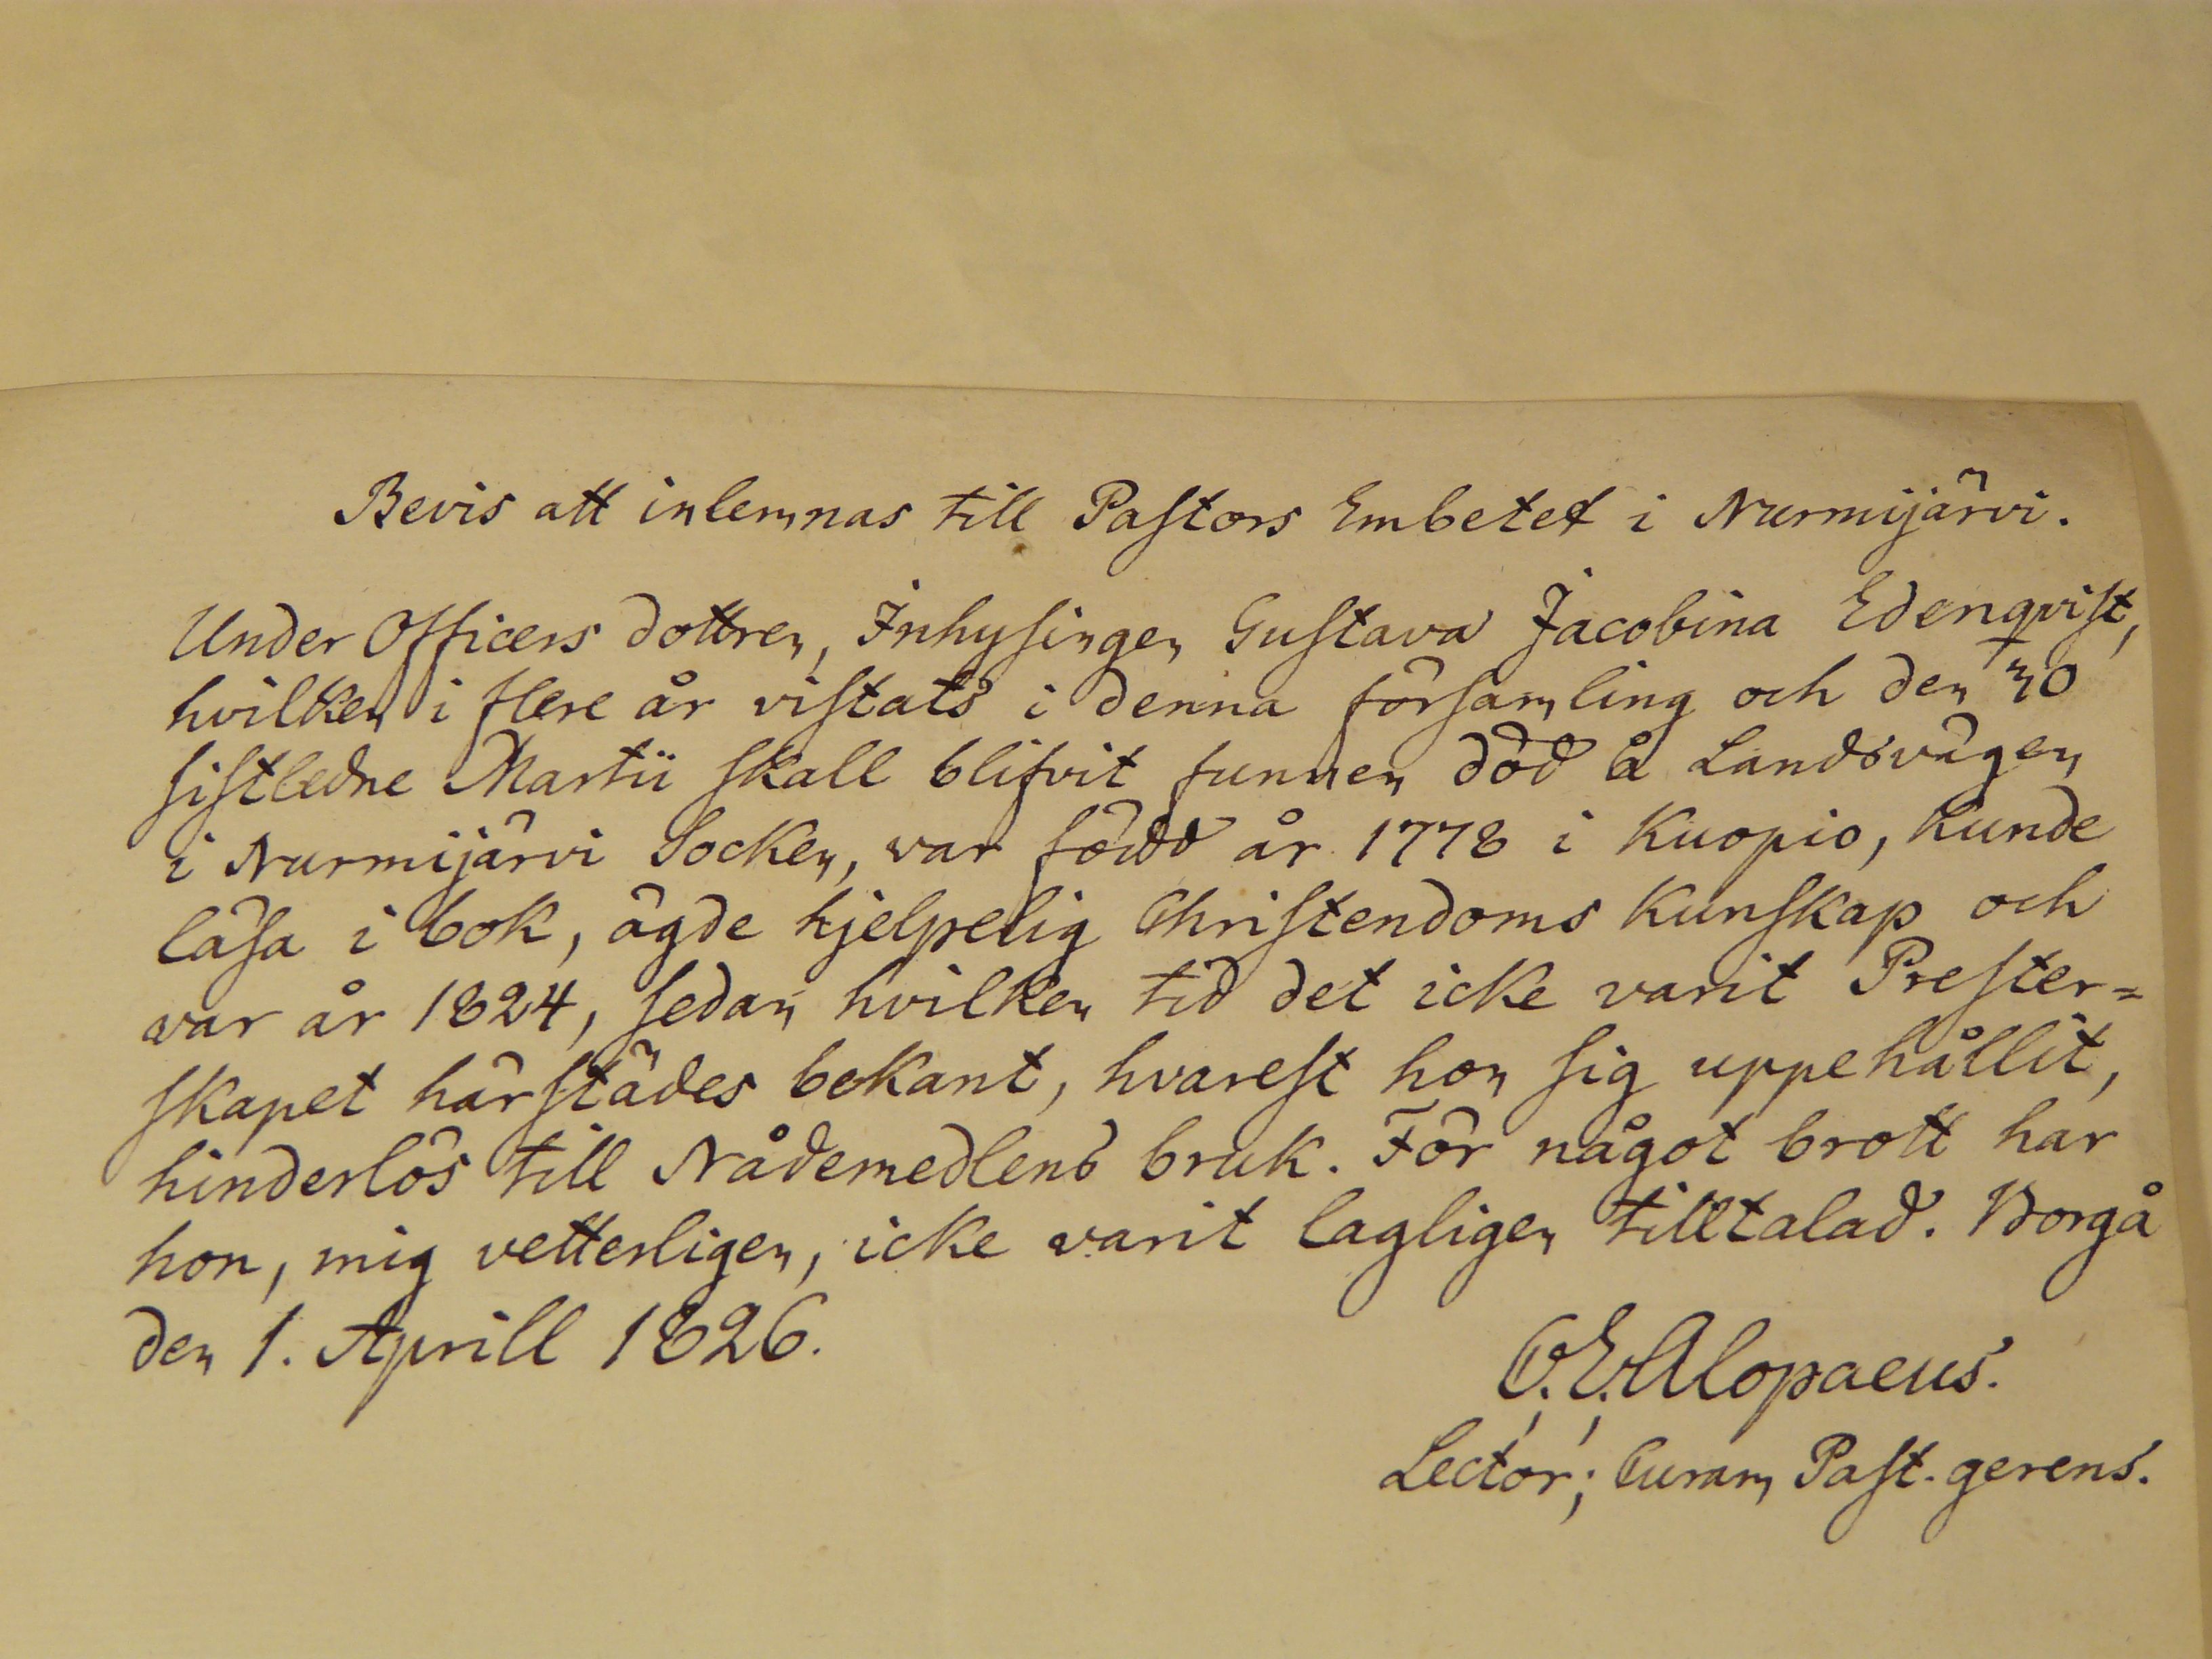 Bevis att inlemnas till Pastors Embetet i Nurmijärvi.
Under Officers dottren, Inhysingen Gustava Jacobina Edenqvist,
hvilken i flere år vistats i denna församling och den 30
sistledne Martii skall blifvit funnen död å Landsvägen
i Nurmijärvi Socken, var född år 1778 i Kuopio, kunde
läsa i bok, ägde hjelpelig Christendoms Kunskap och
var år 1824, sedan hvilken tid det icke varit Prester=
skapet härstädes bekant, hvarest hon sig uppehållit,
hinderlös till Nådemedlens bruk. För något brott har
hon, mig vetterligen, icke varit lagligen tilltalad. Borgå
den 1. Aprill 1826.
O. E. Alopaeus.
Lector; Curam Past. gerens.